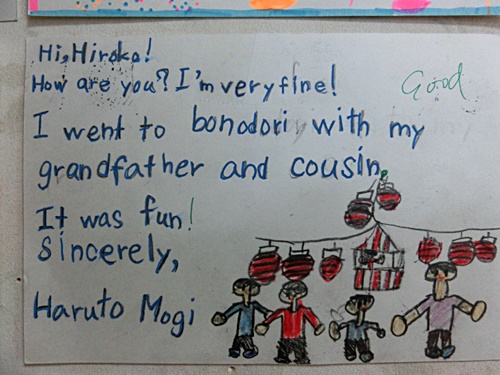 Hi, Hiroko!
How are you? I'm very fine!
Good
I went to bonodori with my
grandfather and cousin.
It was fun!
Sincerely,
Haruto Mogi